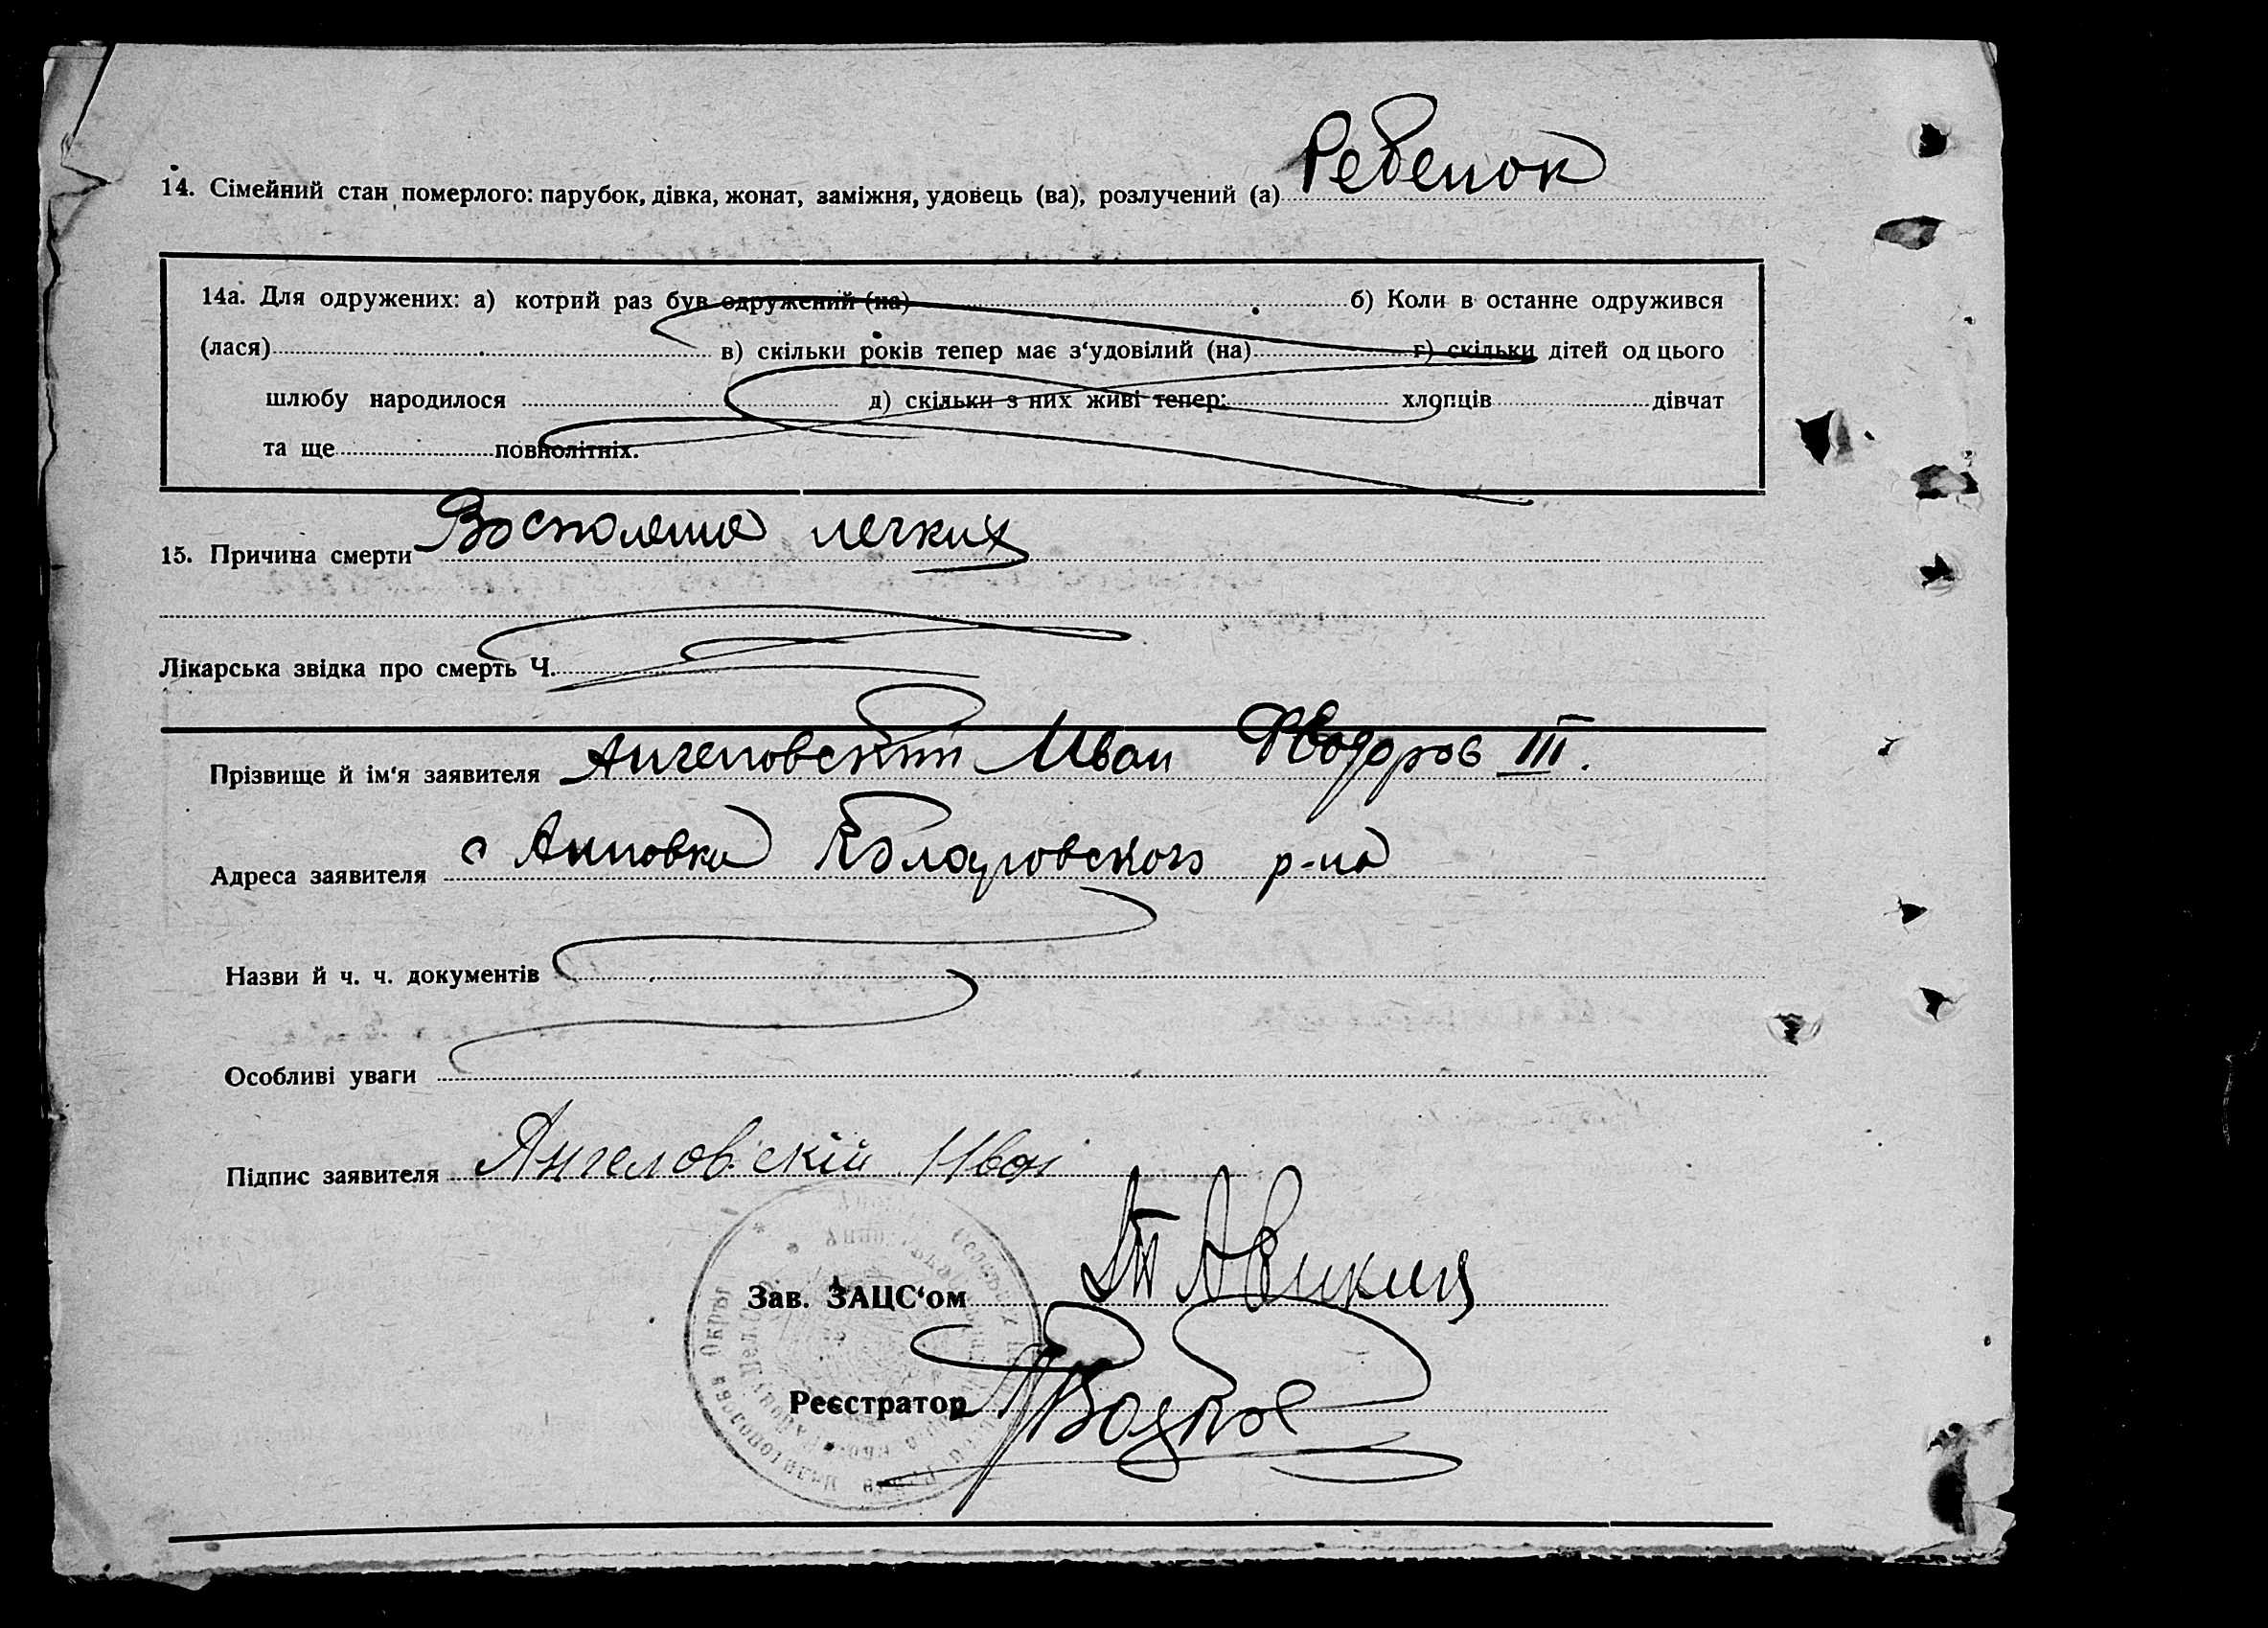 14. Сімейний стан померлого: парубок, дівка, жонат, заміжня, удовець (ва), розлучений (а) Ребенок
14а. Для одружених: а) котрий раз був одружений (на) б) Коли в останне одружився
(лася) в) скільки років тепер має з‘удовілий (на) г) скільки дітей од цього
шлюбу народилося д) скільки з них живі тепер: хлопців дівчат
та ще повнолітніх.
15. Причина смерти Воспаление легких
Лікарська звідка про смерть Ч.
Прізвище й ім‘я заявителя Ангеловский Иван Федоров III.
Адреса заявителя с Анновка р-на
Назви й ч. ч. документів
Особливі уваги
Підпис заявителя Ангеловскій Иван
Зав. ЗАЦС‘ом
Реєстратор